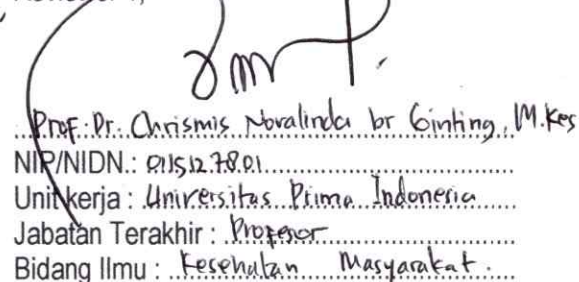 Prof. Dr. Chrismis Novalinda br Ginting, M.Kes
NIP/NIDN.: 0115127801
Unit kerja : Universitas Prima Indonesia
Jabatan Terakhir : Profesor
Bidang Ilmu : Kesehatan Masyarakat.